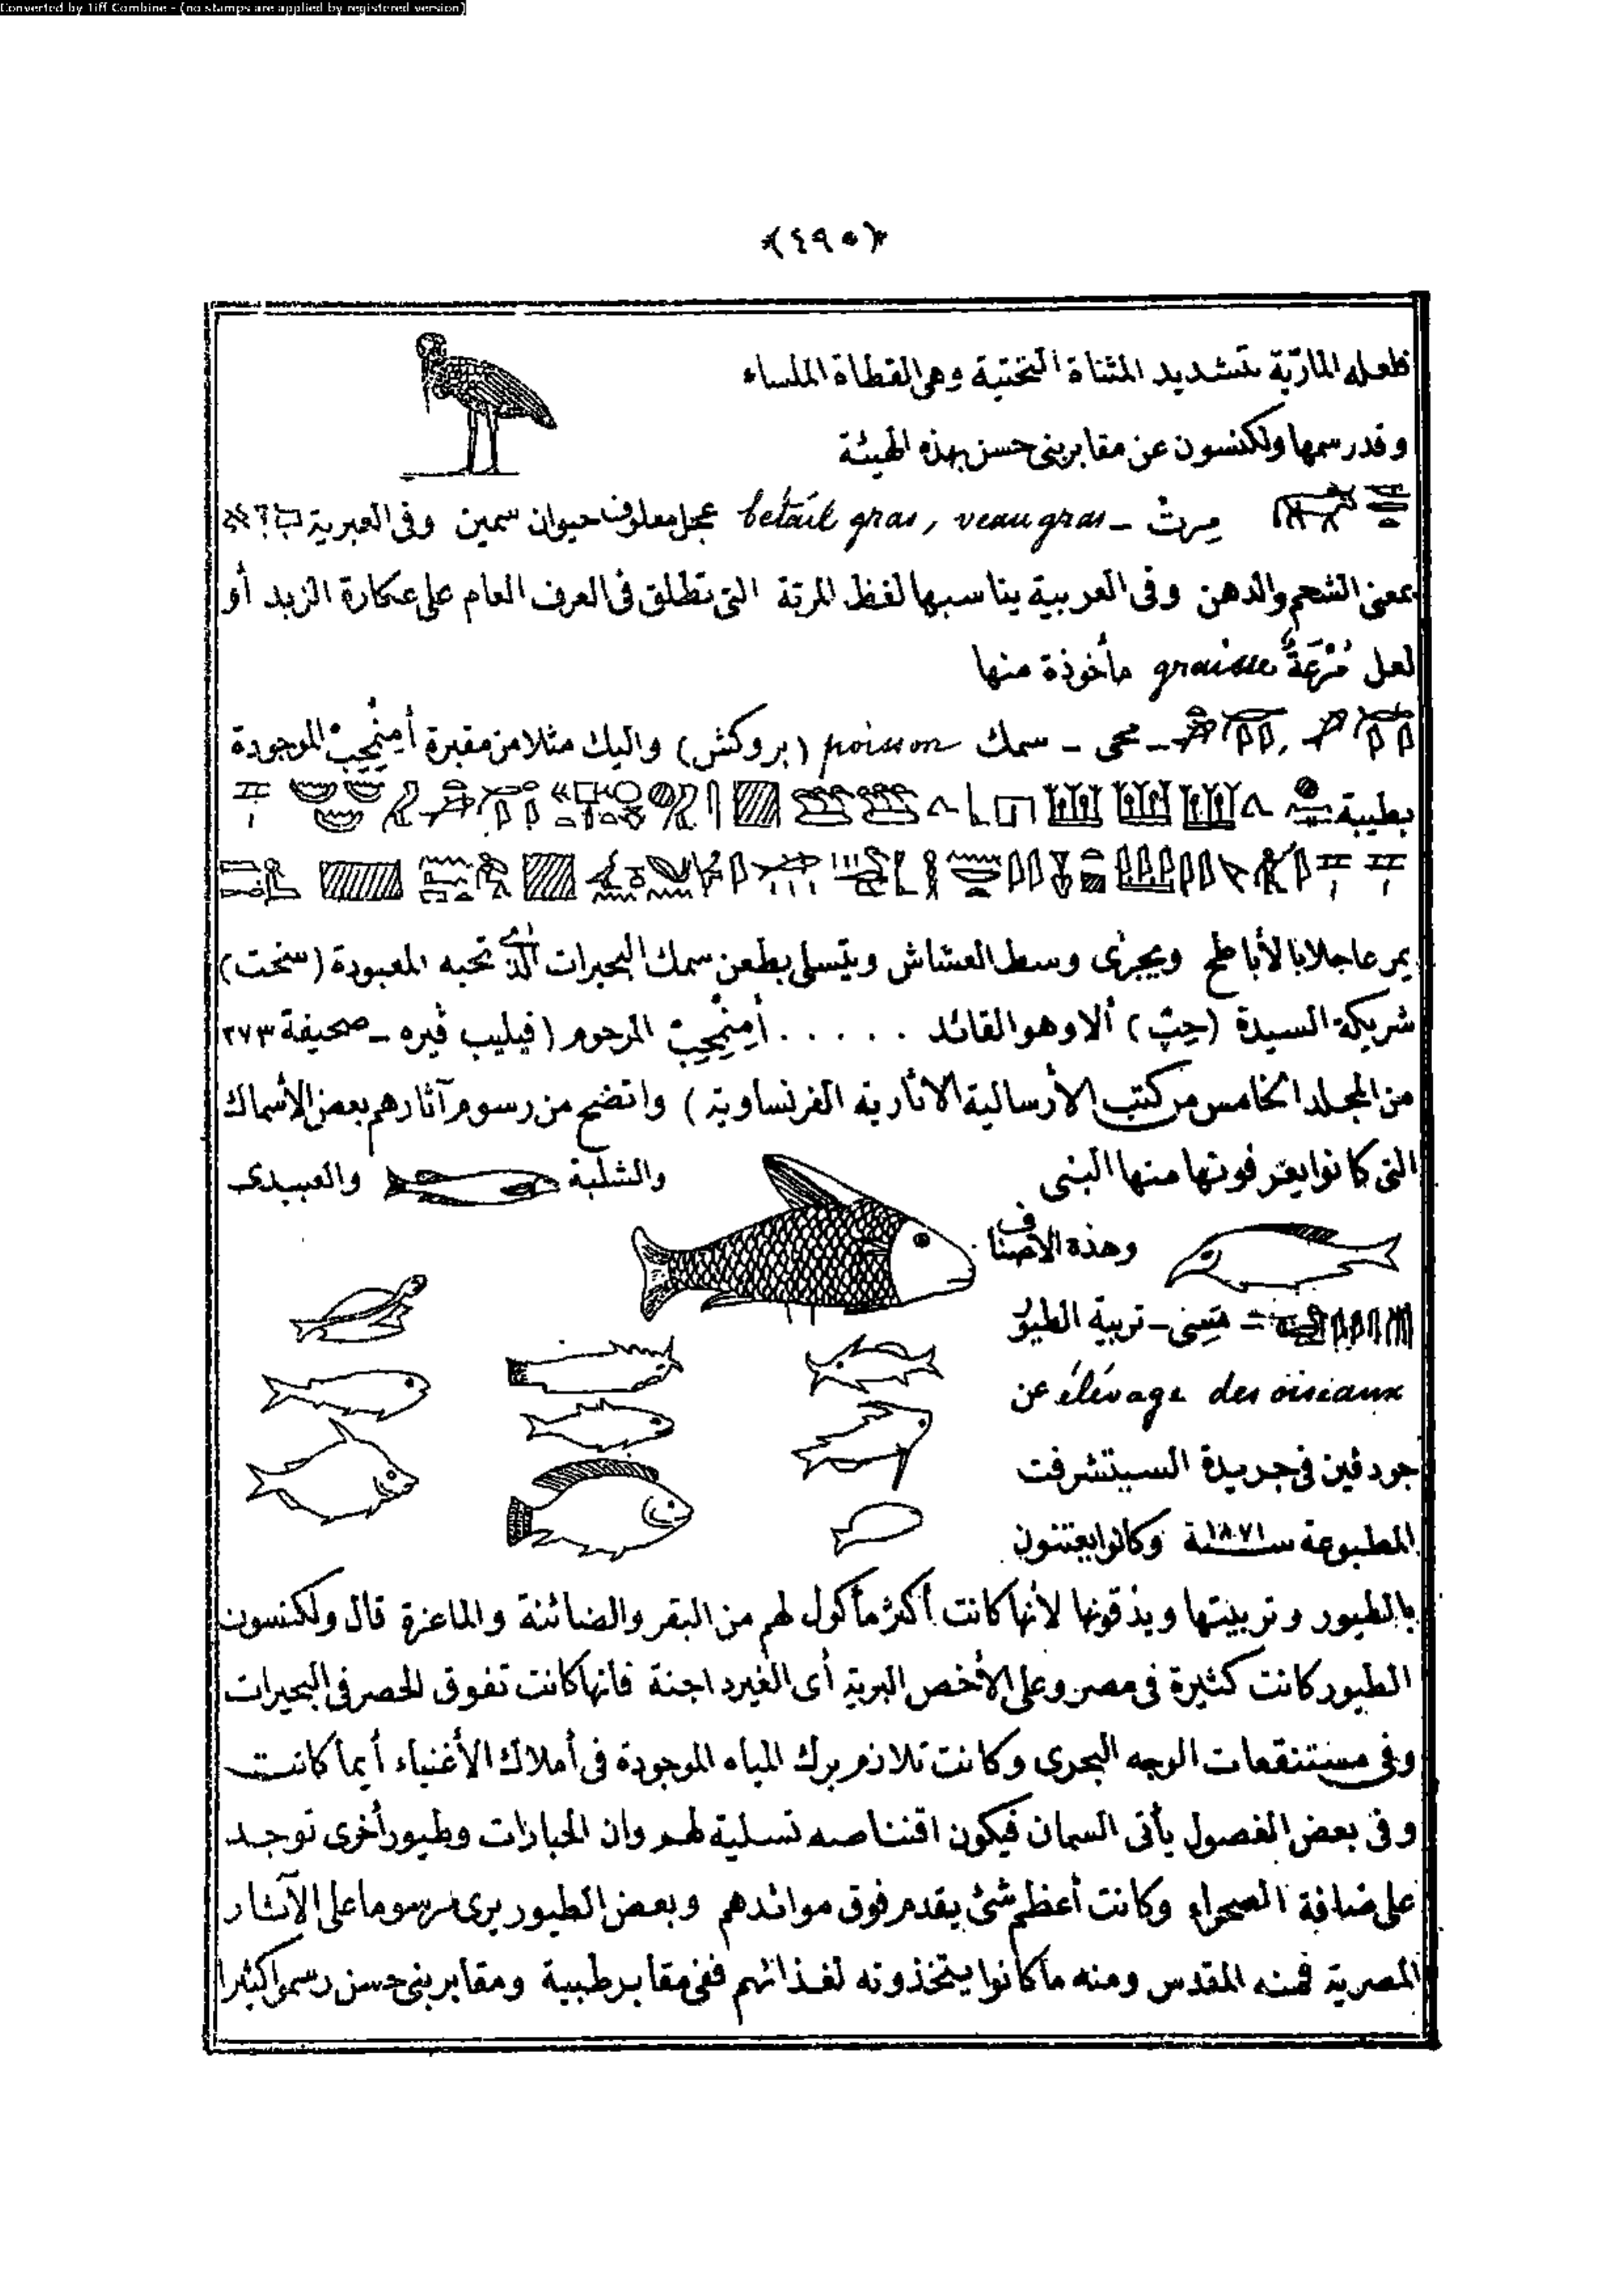 Converted by Tiff Combine - (no stamps are applied by registered version)
﴿٤٩٥﴾
فلعله الماريّة بتشديد المثناة التحتية وهى القطاة الملساء
وقد رسمها ولكنسون عن مقابر بنى حسن بهذه الهيئة
مِرِثْ - betail gras, veau gras عجل معلوف حيوان سمين وفى العبرية
بمعنى الشحم والدهن وفى العربية يناسبها لفظ المرتة التى تطلق فى العرف العام على عكارة الزبد أو
لعل graisse مأخوذة منها
- محى - سمك poisson (بروكش) واليك مثلا من مقبرة أمِنْمِحِبْ الموجودة
بطيبة
يمر عاجلا بالأباطح ويجرى وسط العشاش ويتسلى بطعن سمك البحيرات الذى تحبه المعبودة (سخت)
شريكة السيدة (حِبْ) ألا وهو القائد . . . . . . أمِنْمِحِبْ المرحوم (فيليب ڤيره - صحيفة ٢٧٣
من المجلد الخامس من كتب الأرسالية الاثارية الفرنساوية) واتضح من رسوم آثارهم بعض الأسماك
التى كانوا يعرفونها منها البنى والشلبة والعبيدى
وهذه الاصناف
= مَسِنى - تربية الطيور
élévage des oiseaux عن
جودڤين فى جريدة السيتشرفت
المطبوعة سنة ١٨٧١ وكانوا يعتنون
بالطيور وتربيتها ويذقونها لأنها كانت أكثر مأكول لهم من البقر والضائنة والماعزة قال ولكنسون
الطيور كانت كثيرة فى مصر وعلى الأخص البرية أى الغير داجنة فانها كانت تفوق الحصر فى البحيرات
وفى مستنقعات الوجه البحرى وكانت تلازم برك المياه الموجودة فى أملاك الأغنياء أيما كانت
وفى بعض الفصول يأتى السمان فيكون اقتناصه تسلية لهم وان الحبارات وطيور أخرى توجد
على ضافة الصحراء وكانت أعظم شئ يقدم فوق موائدهم وبعض الطيور يرى مرسوما على الآثار
المصرية فمنه المقدس ومنه ما كانوا يتخذونه لغذائهم ففى مقابر طيبة ومقابر بنى حسن رسموا كثيرا